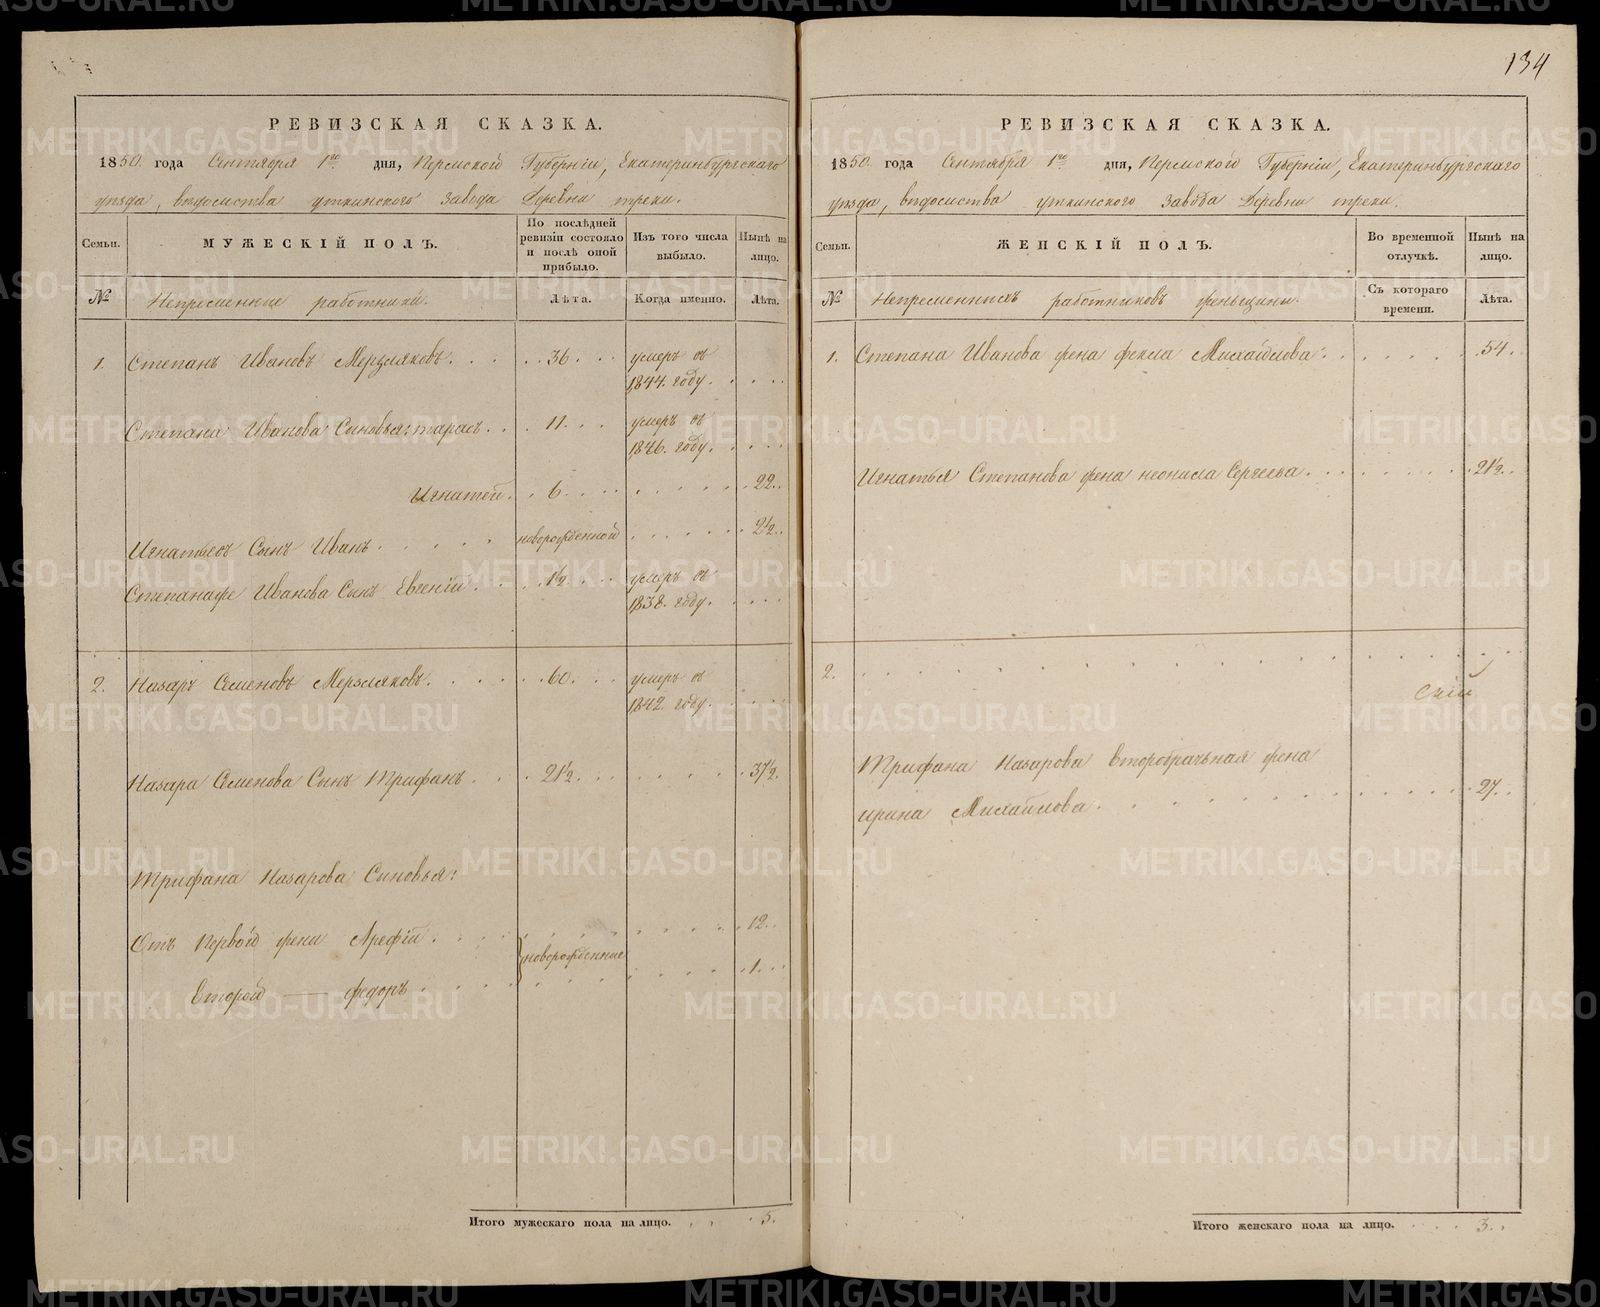 134
РЕВИЗСКАЯ СКАЗКА.
1850 года Сентября 1го дня, Пермской Губерніи, Екатеринбургскаго
уѣзда, вѣдомства уткинского завода Деревни треки.
Семьи.
МУЖЕСКІЙ ПОЛЪ.
По послѣдней ревизіи состояло и послѣ оной прибыло.
Изъ того числа выбыло.
Нынѣ на лицо.
№
Непременные работники.
Лѣта.
Когда именно.
Лѣта.
1. Степанъ Ивановъ Мерзляковъ. 36. умеръ въ
1844. году.
Степана Иванова Сыновья: тарасъ. 11. умеръ въ
1846. году.
Игнатей. 6. 22.
Игнатьевъ Сынъ Иванъ. новорожденной 2½.
Степанаже Иванова Сынъ Евгеній. 1½ умеръ въ
1838. году.
2. Назаръ Семеновъ Мерзляковъ. 60. умеръ въ
1842. году.
Назара Семенова Сынъ Трифанъ. 21½. 37½.
Трифана Назарова Сыновья:
Отъ Первой жены Арефій. 12.
новорожденные
второй — федоръ. 1.
Итого мужескаго пола на лицо. 5.
РЕВИЗСКАЯ СКАЗКА.
1850 года Сентября 1го дня, Пермской Губерніи, Екатеринбургскаго
уѣзда, вѣдомства уткинского завода Деревни треки.
Семьи.
ЖЕНСКІЙ ПОЛЪ.
Во временной отлучкѣ.
Нынѣ на лицо.
№
Непременныхъ работниковъ женьщины.
Съ котораго времени.
Лѣта.
1. Степана Иванова жена фекла Михайлова. 54.
Игнатья Степанова жена неонила Сергеева. 21½.
2.
Трифана Назарова второбрачьная жена
ирина Михайлова. 27.
Итого женскаго пола на лицо. 3.
METRIKI.GASO-URAL.RU